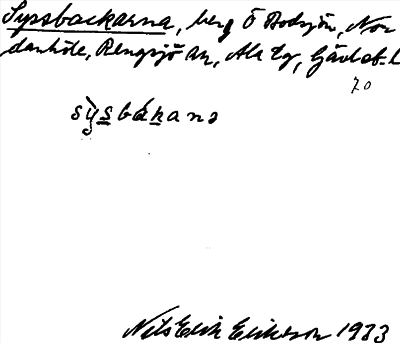 Syssbackarna, berg Ö Bodsjön, Nor
danhöle, Rengsjö sn, Ala tg, Gävleb. l
70
sỳs̲bák̲anə
Nils Erik Erikson 1933